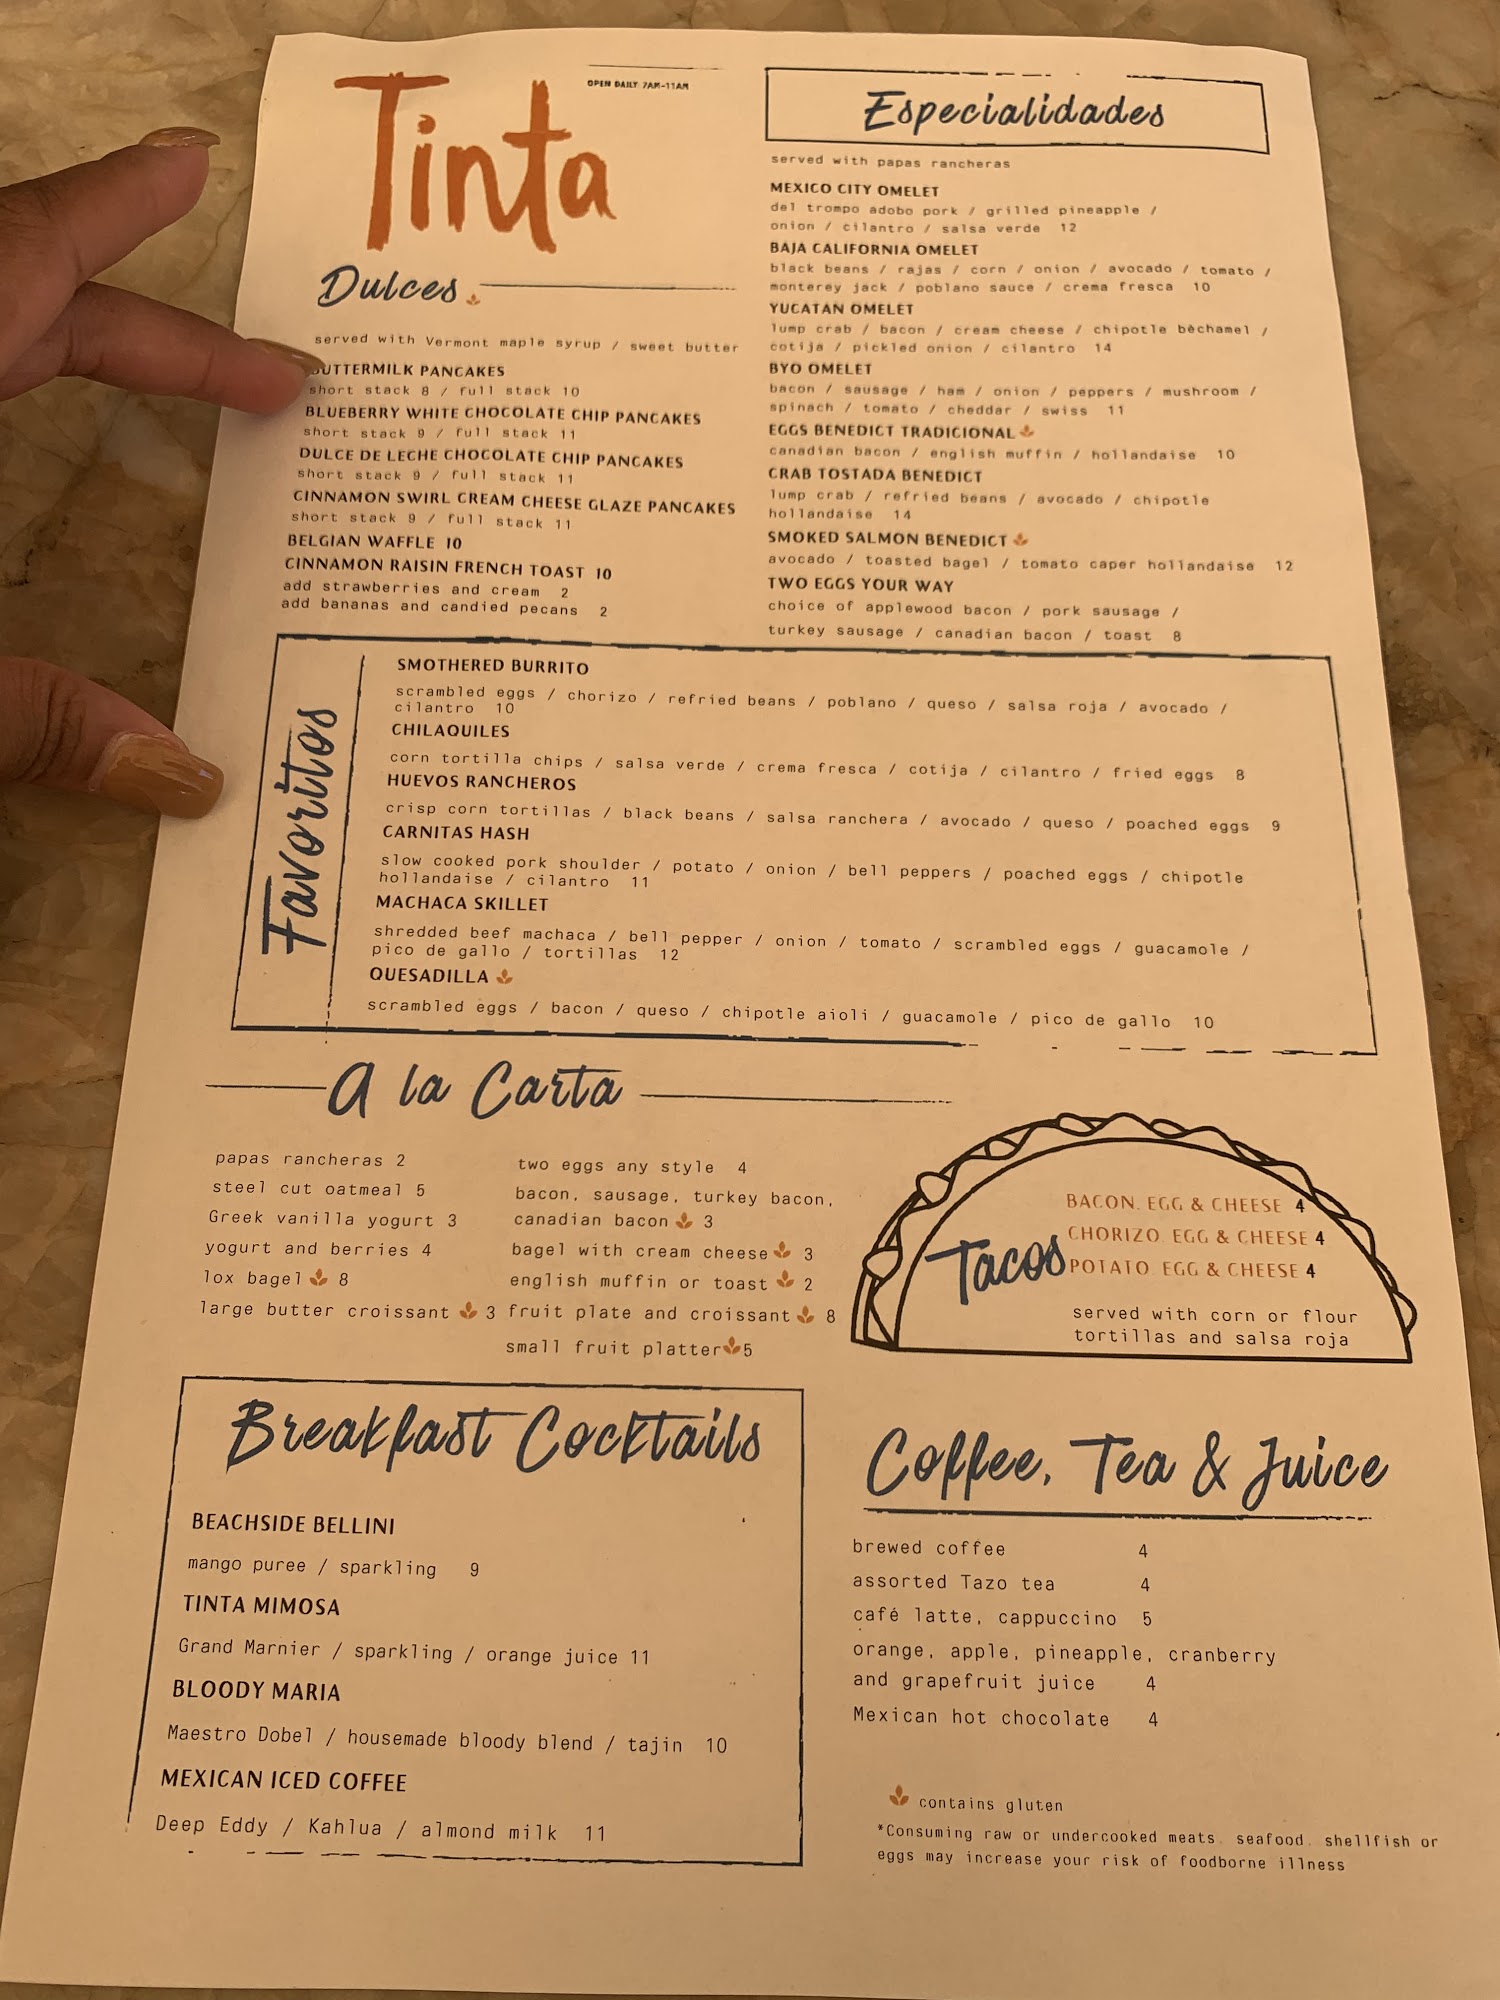 Tinta
OPEN DAILY 7AM-11AM
Dulces
served with Vermont maple syrup / sweet butter
BUTTERMILK PANCAKES
short stack 8 / full stack 10
BLUEBERRY WHITE CHOCOLATE CHIP PANCAKES
short stack 9 / full stack 11
DULCE DE LECHE CHOCOLATE CHIP PANCAKES
short stack 9 / full stack 11
CINNAMON SWIRL CREAM CHEESE GLAZE PANCAKES
short stack 9 / full stack 11
BELGIAN WAFFLE 10
CINNAMON RAISIN FRENCH TOAST 10
add strawberries and cream 2
add bananas and candied pecans 2
Especialidades
served with papas rancheras
MEXICO CITY OMELET
del trompo adobo pork / grilled pineapple /
onion / cilantro / salsa verde 12
BAJA CALIFORNIA OMELET
black beans / rajas / corn / onion / avocado / tomato /
monterey jack / poblano sauce / crema fresca 10
YUCATAN OMELET
lump crab / bacon / cream cheese / chipotle bèchamel /
cotija / pickled onion / cilantro 14
BYO OMELET
bacon / sausage / ham / onion / peppers / mushroom /
spinach / tomato / cheddar / swiss 11
EGGS BENEDICT TRADICIONAL
canadian bacon / english muffin / hollandaise 10
CRAB TOSTADA BENEDICT
lump crab / refried beans / avocado / chipotle
hollandaise 14
SMOKED SALMON BENEDICT
avocado / toasted bagel / tomato caper hollandaise 12
TWO EGGS YOUR WAY
choice of applewood bacon / pork sausage /
turkey sausage / canadian bacon / toast 8
Favoritos
SMOTHERED BURRITO
scrambled eggs / chorizo / refried beans / poblano / queso / salsa roja / avocado /
cilantro 10
CHILAQUILES
corn tortilla chips / salsa verde / crema fresca / cotija / cilantro / fried eggs 8
HUEVOS RANCHEROS
crisp corn tortillas / black beans / salsa ranchera / avocado / queso / poached eggs 9
CARNITAS HASH
slow cooked pork shoulder / potato / onion / bell peppers / poached eggs / chipotle
hollandaise / cilantro 11
MACHACA SKILLET
shredded beef machaca / bell pepper / onion / tomato / scrambled eggs / guacamole /
pico de gallo / tortillas 12
QUESADILLA
scrambled eggs / bacon / queso / chipotle aioli / guacamole / pico de gallo 10
A la Carta
papas rancheras 2
steel cut oatmeal 5
Greek vanilla yogurt 3
yogurt and berries 4
lox bagel 8
large butter croissant 3
two eggs any style 4
bacon, sausage, turkey bacon,
canadian bacon 3
bagel with cream cheese 3
english muffin or toast 2
fruit plate and croissant 8
small fruit platter 5
Tacos
BACON, EGG & CHEESE 4
CHORIZO, EGG & CHEESE 4
POTATO, EGG & CHEESE 4
served with corn or flour
tortillas and salsa roja
Breakfast Cocktails
BEACHSIDE BELLINI
mango puree / sparkling 9
TINTA MIMOSA
Grand Marnier / sparkling / orange juice 11
BLOODY MARIA
Maestro Dobel / housemade bloody blend / tajin 10
MEXICAN ICED COFFEE
Deep Eddy / Kahlua / almond milk 11
Coffee, Tea & Juice
brewed coffee 4
assorted Tazo tea 4
café latte, cappuccino 5
orange, apple, pineapple, cranberry
and grapefruit juice 4
Mexican hot chocolate 4
contains gluten
*Consuming raw or undercooked meats, seafood, shellfish or
eggs may increase your risk of foodborne illness